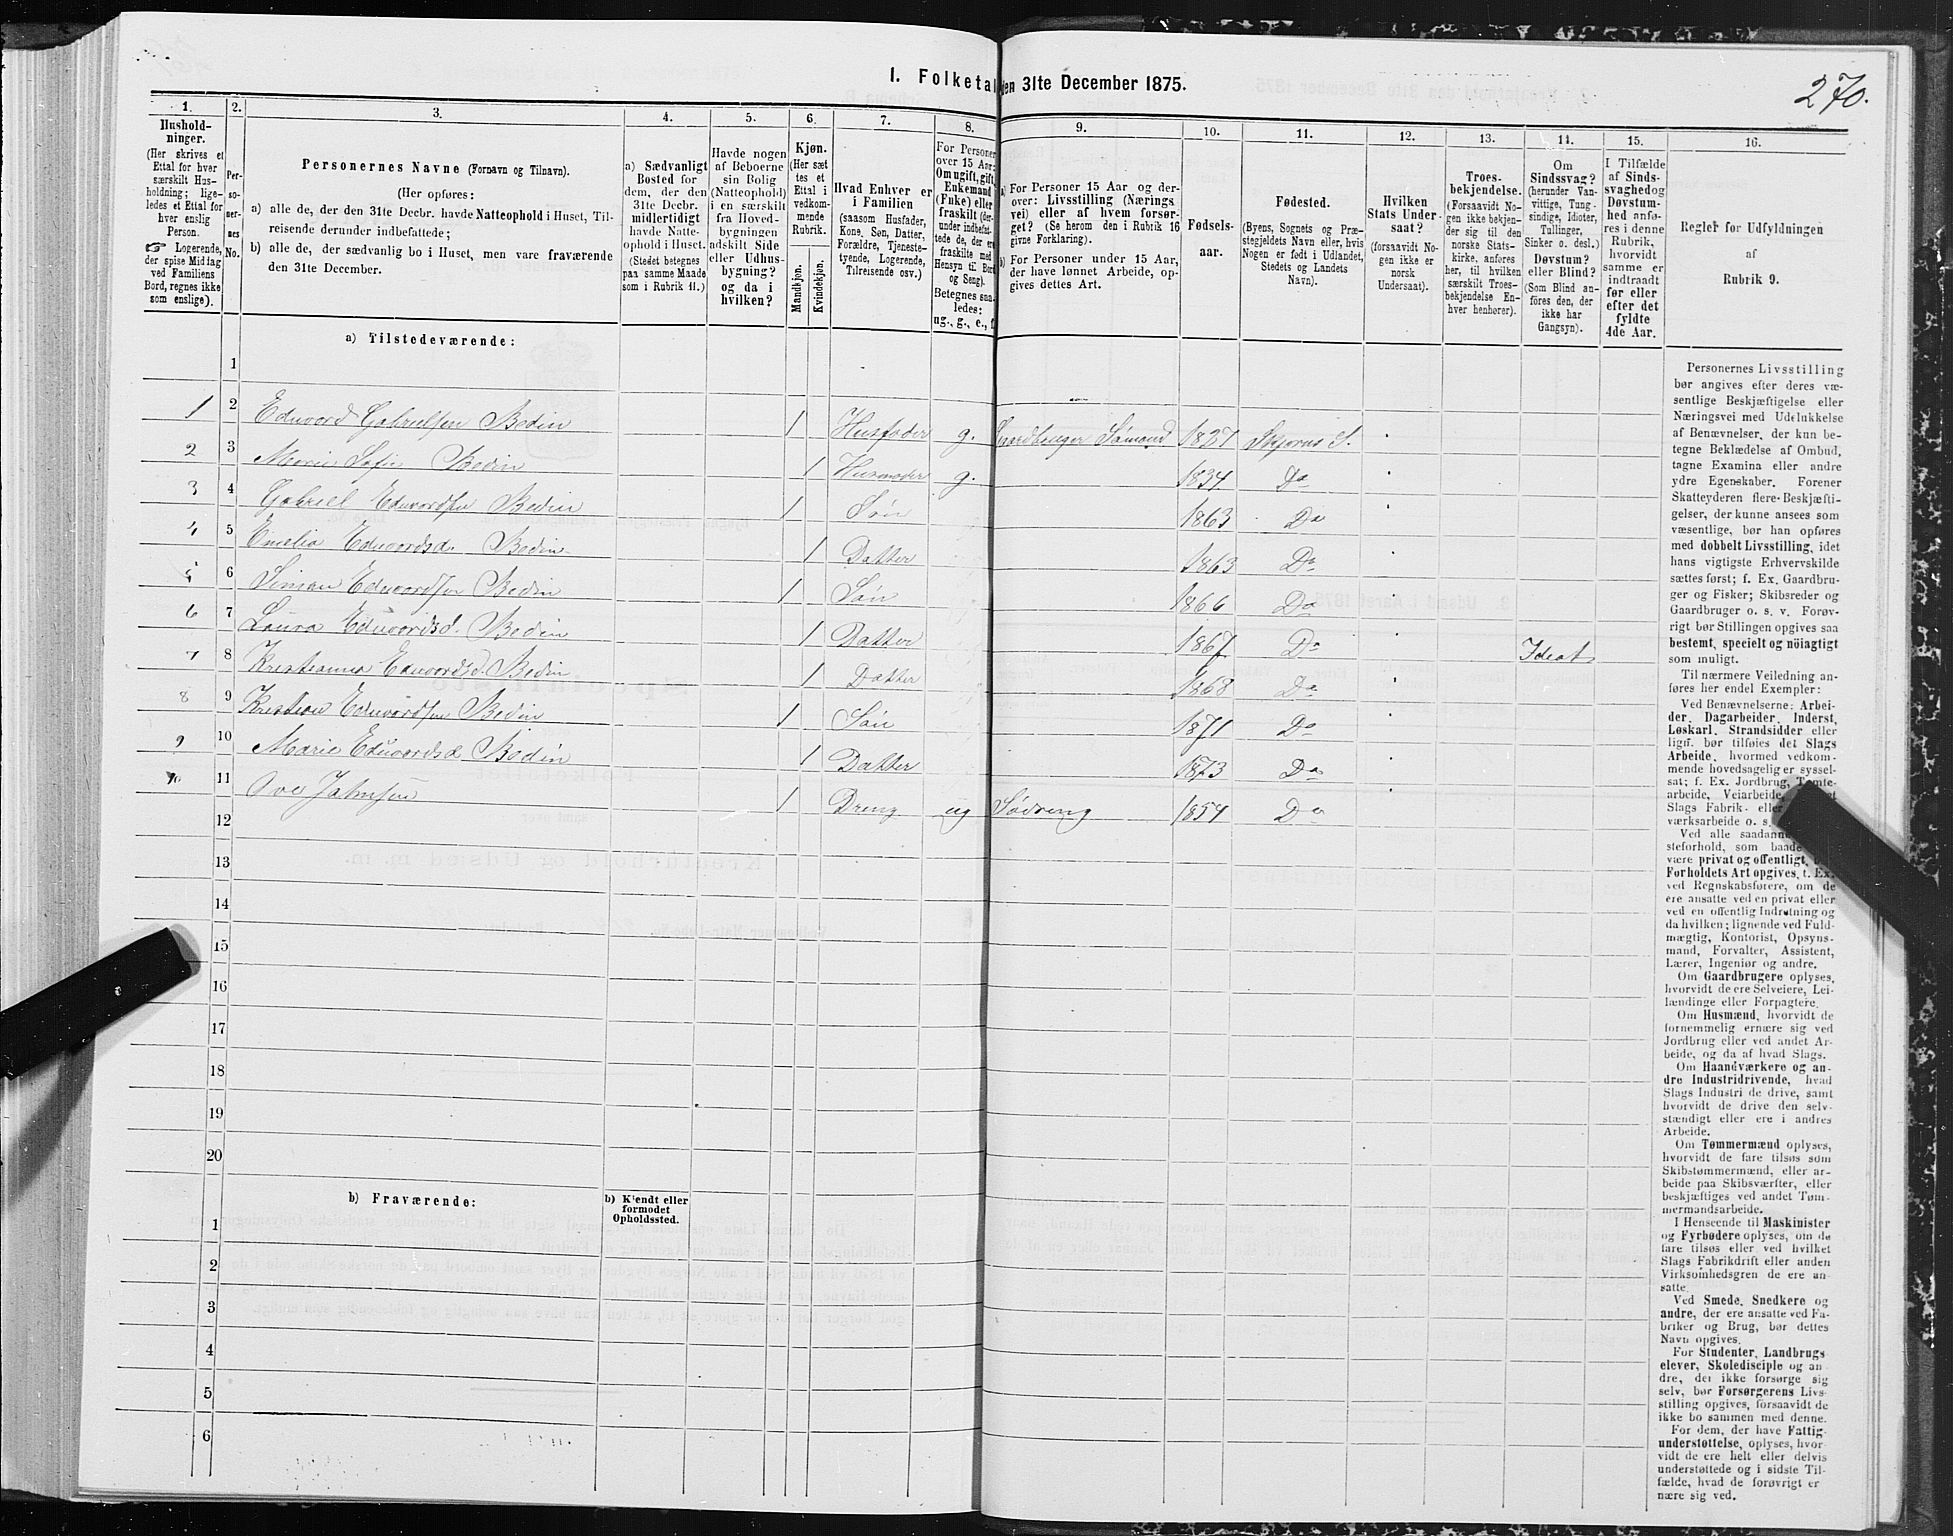 270.
I. Folketal den 31te December 1875.
1. 2. 3. 4. 5. 6. 7. 8. 9. 10. 11. 12. 13. 14. 15. 16.
Hushold-
ninger.
(Her skrives et
Ettal for hver
særskilt Hus-
holdning; lige-
ledes et Ettal for
hver enslig
Person.
☞ Logerende,
der spise Middag
ved Familiens
Bord, regnes ikke
som enslige).
Per-
so-
ner-
nes
No.
Personernes Navne (Fornavn og Tilnavn).
(Her opføres:
a) alle de, der den 31te Decbr. havde Natteophold i Huset, Til-
reisende derunder indbefattede;
b) alle de, der sædvanlig bo i Huset, men vare fraværende
den 31te December.
a) Sædvanligt
Bosted for
dem, der den
31te Decbr.
midlertidigt
havde Natte-
ophold i Huset.
(Stedet betegnes
paa samme Maade
som i Rubrik 11.)
Havde nogen
af Beboerne
sin Bolig
(Natteophold)
i en særskilt
fra Hoved-
bygningen
adskilt Side
eller Udhus-
bygning?
og da i
hvilken?
Kjøn.
(Her sæt
tes et
Ettal i
vedkom-
mende
Rubrik.
Mandkjøn.
Kvindekjøn.
Hvad Enhver er
i Familien
(saasom Husfader,
Kone, Søn, Datter,
Forældre, Tjeneste-
tyende, Logerende,
Tilreisende osv.)
For Personer
over 15 Aar:
Om ugift, gift,
Enkemand
(Fuke) eller
fraskilt (der-
under indbefat-
tede de, der ere
fraskilte med
Hensyn til Bord
og Seng).
Betegnes saa-
ledes:
ug., g., e., f.
a) For Personer 15 Aar og der-
over: Livsstilling (Nærings
vei) eller af hvem forsør-
get? (Se herom den i Rubrik 16
givne Forklaring).
b) For Personer under 15 Aar,
der have lønnet Arbeide, op-
gives dettes Art.
Fødsels-
aar.
Fødested.
(Byens, Sognets og Præ-
stegjeldets Navn eller, hvis
Nogen er født i Udlandet,
Stedets og Landets
Navn).
Hvilken
Stats Under-
saat?
(forsaavidt No-
gen ikke er
norsk
Undersaat).
Troes-
bekjendelse.
(Forsaavidt No-
gen ikke bekjen-
der sig til den
norske Stats-
kirke, anføres
her, til hvilken
særskilt Troes-
bekjendelse En-
hver henhører).
Om
Sindssvag?
(herunder Van-
vittige, Tung-
sindige, Idioter,
Tullinger,
Sinker o. desl.)
Døvstum?
eller Blind?
(Som Blind an-
føres den, der
ikke har
Gangsyn).
I Tilfælde
af Sinds-
svaghed og
Døvstum-
hed anfø-
res i denne
Rubrik,
hvorvidt
samme er
indtraadt
før eller
efter det
fyldte
4de Aar.
Regler for Udfyldningen
af
Rubrik 9.
a) Tilstedeværende:
1
1 2 Eduvard Gabrielsen Bedin 1 Husfader g. Gaardbruger Sømand 1827 Skjorns S.
2 3 Maria Sofie Bedin 1 Husmoder g. 1834 Do
3 4 Gabriel Eduvardsen Bedin 1 Søn 1863 Do
4 5 Emelia Eduvardsd. Bedin 1 Datter 1863 Do
5 6 Simon Eduvardsen Bedin 1 Søn 1866 Do
6 7 Laura Eduvardsd. Bedin 1 Datter 1867 Do Ideot
7 8 Kristianna Eduvardsd. Bedin 1 Datter 1868 Do
8 9 Kristian Eduvardsen Bedin 1 Søn 1871 Do
9 10 Marie Eduvardsd Bedin 1 Datter 1873 Do
10 11 Ove Jahnsen 1 Dreng ug Sødreng 1854 Do
12
13
14
15
16
17
18
19
20
b) Fraværende:
b) Kjendt eller
formodet
Opholdssted.
1
2
3
4
5
6
Personernes Livsstilling
bør angives efter deres væ-
sentlige Beskjæftigelse eller
Næringsvei med Udelukkelse
af Benævnelser, der kun be-
tegne Beklædelse af Ombud,
tagne Examina eller andre
ydre Egenskaber. Forener
Skatteyderen flere Beskjæfti-
gelser, der kunne ansees som
væsentlige, bør han opføres
med dobbelt Livsstilling, idet
hans vigtigste Erhvervskilde
sættes først; f. Ex. Gaardbru-
ger og Fisker; Skibsreder og
Gaardbruger o. s. v. Forøv-
rigt bør Stillingen opgives saa
bestemt, specielt og nöiagtigt
som muligt.
Til nærmere Veiledning an-
føres her endel Exempler:
Ved Benævnelserne: Arbei-
der, Dagarbeider, Inderst,
Løskarl, Strandsidder eller
lign. bør tilføies det Slags
Arbeide, hvormed vedkom-
mende hovedsagelig er syssel-
sat; f. Ex. Jordbrug, Tomte-
arbeide, Veiarbeide,
Slags Fabrik- eller
værksarbeide o. s.
Ved alle saadanne
steforhold, som baade
være privat og offentligt,
Forholdets Art opgives, t. Ex.
ved Regnskabsførere, om de
ere ansatte ved en privat eller
ved en offentlig Indretning og
da hvilken; lignende ved Fuld-
mægtig, Kontorist, Opsyns-
mand, Forvalter, Assistent,
Lærer, Ingeniør og andre.
Om Gaardbrugere oplyses,
hvorvidt de ere Selveiere, Lei-
lændinge eller Forpagtere.
Om Husmænd, hvorvidt de
fornemmelig ernære sig ved
Jordbrug eller ved andet Ar-
beide, og da af hvad Slags.
Om Haandværkere og an-
dre Industridrivende, hvad
Slags Industri de drive, samt
hvorvidt de drive den selv-
stændigt eller ere i andres
Arbeide.
Om Tømmermænd oplyses,
hvorvidt de fare tilsøs som
Skibstømmermænd, eller ar-
beide paa Skibsværfter, eller
beskjæftiges ved andet Tøm-
mermandsarbeide.
I Henseende til Maskinister
og Fyrbødere oplyses, om de
fare tilsøs eller ved hvilket
Slags Fabrikdrift eller anden
Virksomhedsgren de ere an-
satte.
Ved Smede, Snedkere og
andre, der ere ansatte ved Fa-
briker og Brug, bør dettes
Navn opgives.
For Studenter, Landbrugs
elever, Skoledisciple og an
dre, der ikke forsørge sig
selv, bør Forsørgerens Livs-
stilling opgives, forsaavidt de
ikke bo sammen med denne.
For dem, der have Fattig-
understøttelse, oplyses, hvor-
vidt de ere helt eller delvis
understøttede og i sidste Til-
fælde, hvad de forøvrigt er
nære sig ved.